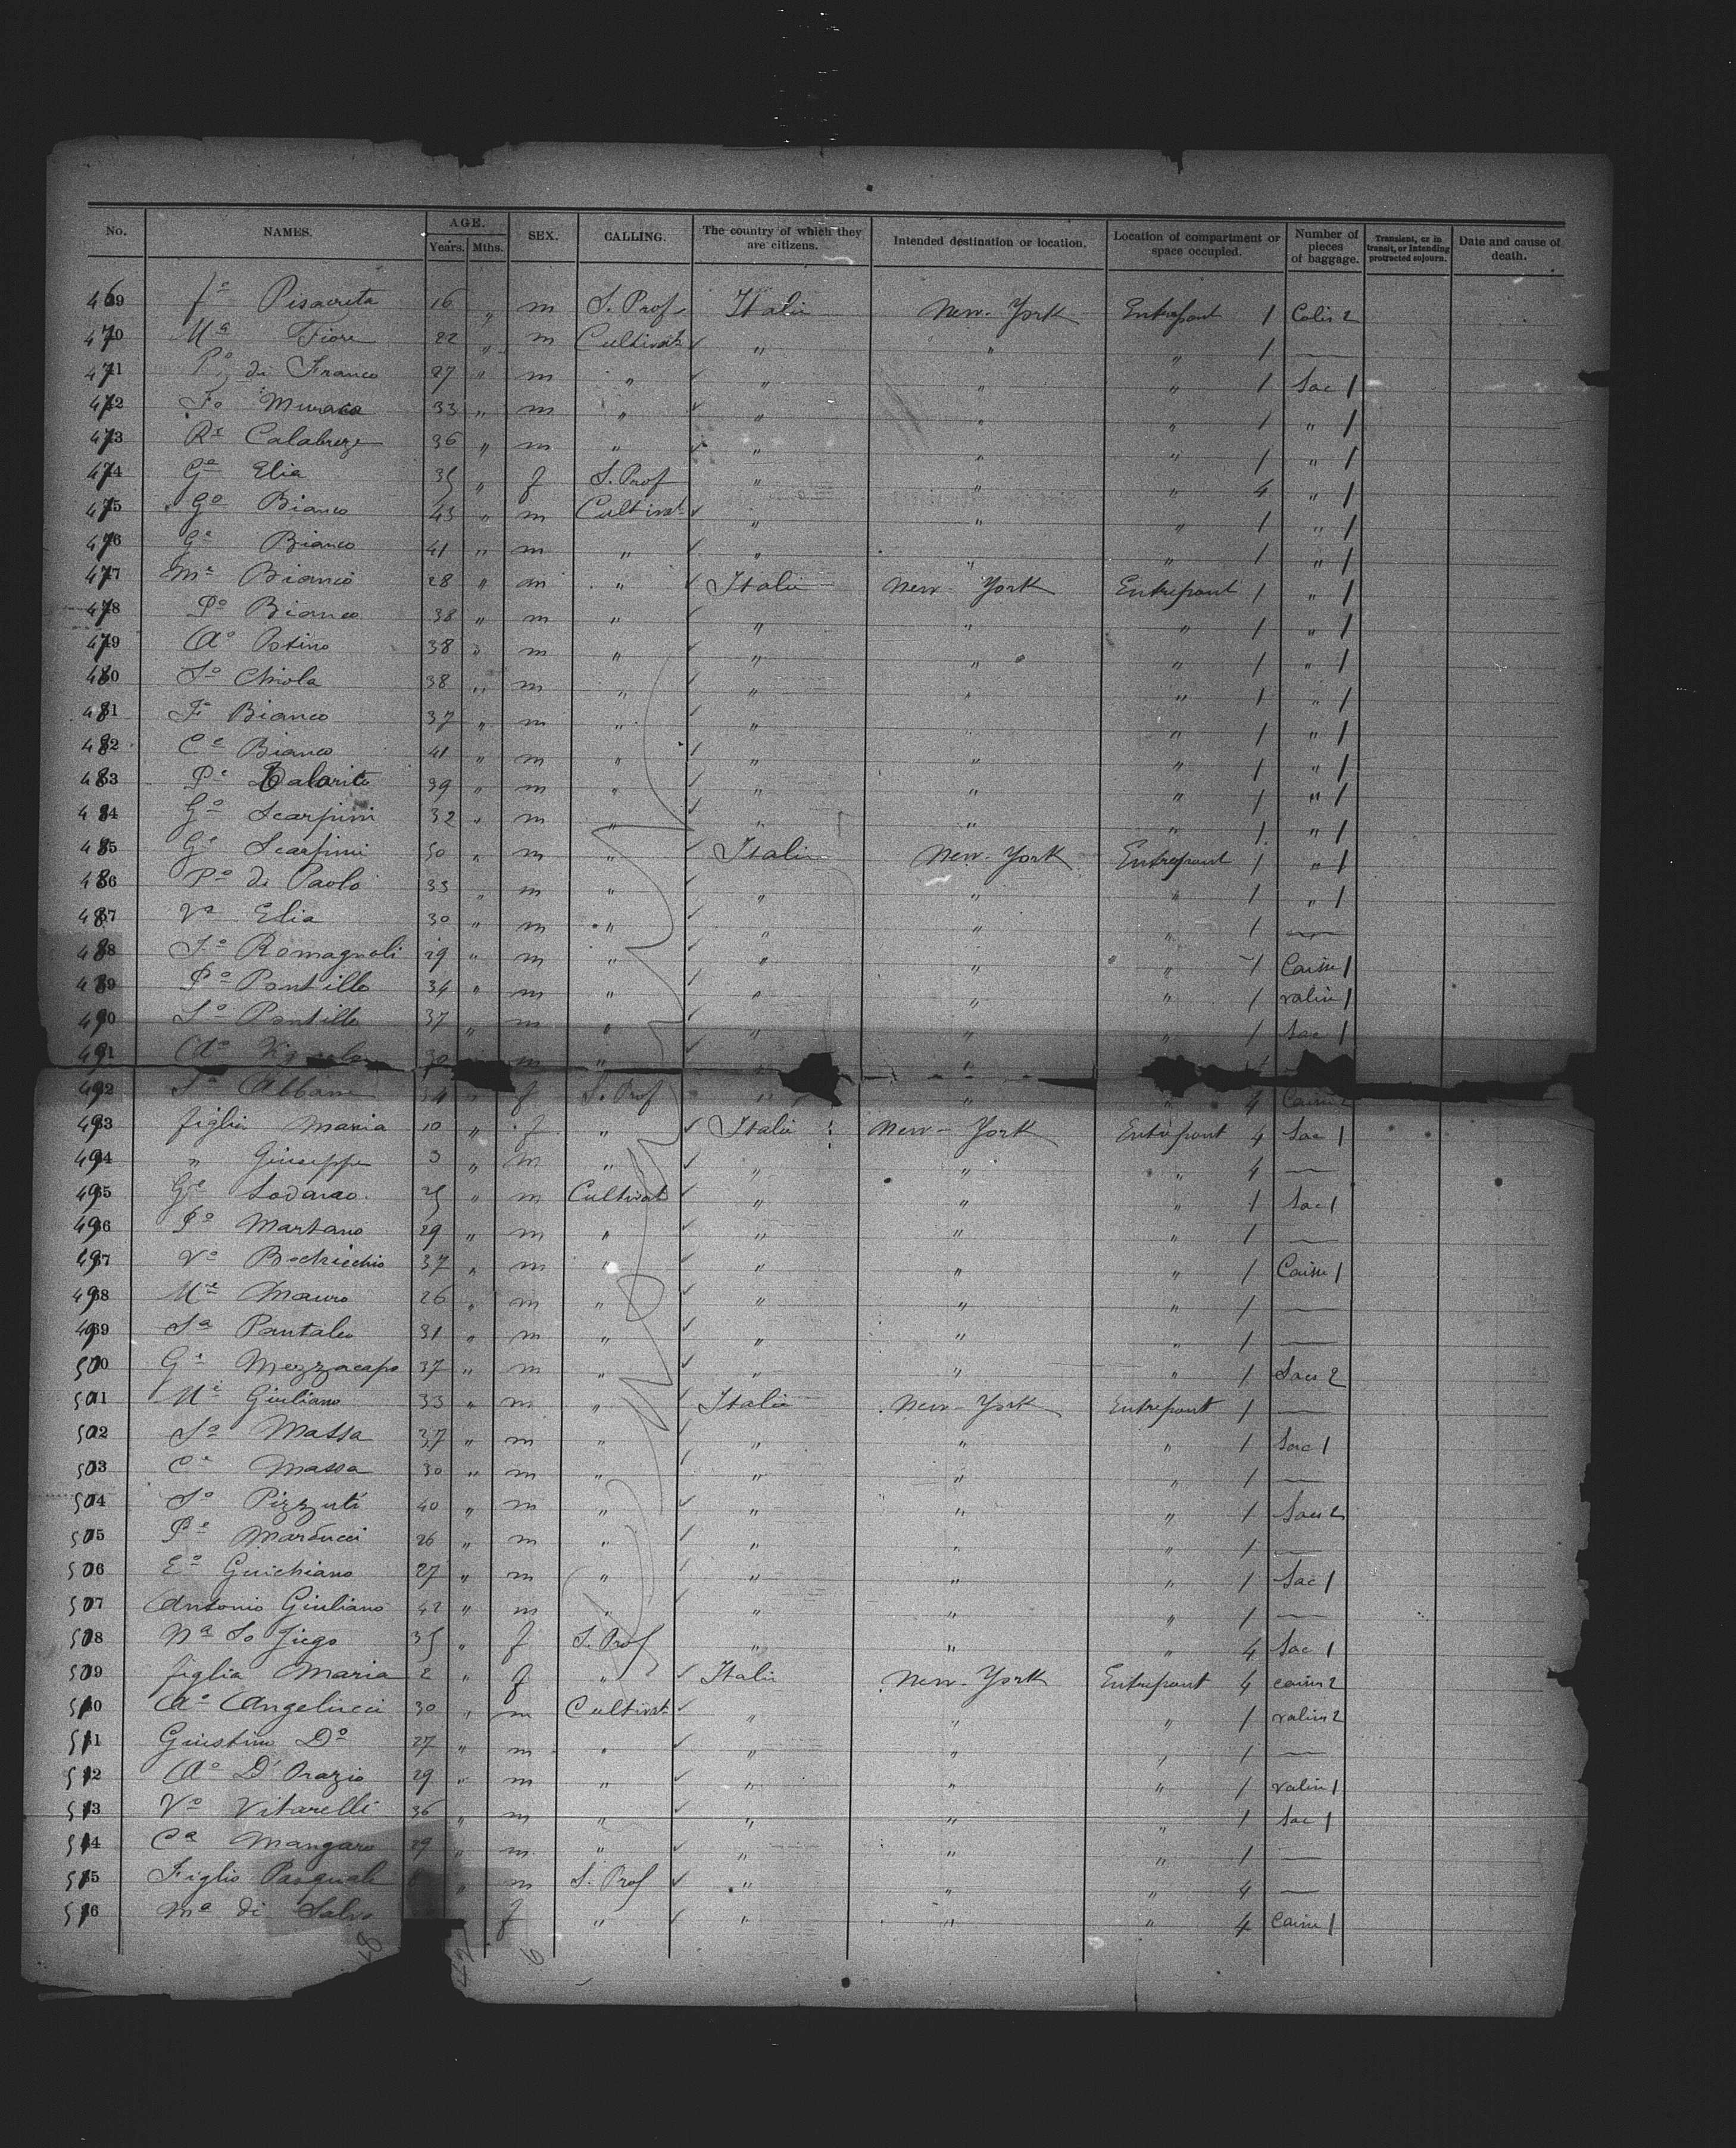 No. NAMES. AGE. Years. Mths. SEX. CALLING. The country of which they are citizens. Intended destination or location. Location of compartment or space occupied. Number of pieces of baggage. Transient, or in transit, or intending protracted sojourn. Date and cause of death.
469 fº Pisacreta 16 " m S. Prof Italie New-York Entrepont 1 Colis 2
470 Mª Fiore 22 " m Cultivat " " " 1 —
471 Pº di Franco 27 " m " " " " 1 Sac 1
472 Fº Muraca 33 " m " " " " 1 " 1
473 Rº Calabreze 36 " m " " " " 1 " 1
474 Gª Elia 35 " f S. Prof " " " 4 " 1
475 Gº Bianco 43 " m Cultivat " " " 1 " 1
476 Gº Bianco 41 " m " " " " 1 " 1
477 Mº Bianco 28 " m " Italie New-York Entrepont 1 " 1
478 Pº Bianco 38 " m " " " " 1 " 1
479 Aº Potino 38 " m " " " " 1 " 1
480 Sº Chiola 38 " m " " " " 1 " 1
481 Fº Bianco 37 " m " " " " 1 " 1
482 Cº Bianco 41 " m " " " " 1 " 1
483 Pº 39 " m " " " " 1 " 1
484 Gº Scarpini 32 " m " " " " 1 " 1
485 Gº Scarpini 50 " m " Italie New-York Entrepont 1 " 1
486 Pº di Paolo 33 " m " " " " 1 " 1
487 Vª Elia 30 " m " " " " 1 —
488 Fº Romagnoli 29 " m " " " " 1 Caisse 1
489 Pº Pontillo 34 " m " " " " 1 valise 1
490 Sº Pontillo 37 " m " " " " 1 Sac 1
491 Aº 30 m " " "
492 Sª Albani 34 " f S. Prof " " " 4 Caisse 2
493 figlia Maria 10 " f " Italie New-York Entrepont 4 Sac 1
494 " Giuseppe 3 " m " " " " 4 —
495 Gº Lodarao 25 " m Cultivat " " " 1 Sac 1
496 Pº Martano 29 " m " " " " 1 —
497 Vº Bochicchio 37 " m " " " " 1 Caisse 1
498 Mº Mauro 26 " m " " " " 1 —
499 Sª Pantaleo 31 " m " " " " 1 —
500 Gº Mezzacapo 37 " m " " " " 1 Sacs 2
501 Nº Giuliano 33 " m " Italie New-York Entrepont 1 —
502 Sº Massa 37 " m " " " " 1 Sac 1
503 Cº Massa 30 " m " " " " 1 —
504 Sº Pizzuti 40 " m " " " " 1 Sacs 2
505 Pº Marducci 26 " m " " " " 1 —
506 Eº Guichiano 27 " m " " " " 1 Sac 1
507 Antonio Giuliano 42 " m " " " " 1 —
508 Nª Lo Jiego 35 " f S. Prof " " " 4 Sac 1
509 figlia Maria 2 " f " Italie New-York Entrepont 4 caisse 2
510 Aº Angelucci 30 " m Cultivat " " " 1 valises 2
511 Giustino Dº 27 " m " " " " 1 —
512 Aº D'Orazio 29 " m " " " " 1 valise 1
513 Vº Vitarelli 36 " m " " " " 1 Sac 1
514 Cª Mangaro 29 " m " " " " 1 —
515 Figlio Pasquale " m S. Prof " " " 4 —
516 Mª di Salvo f " " " " 4 Caisse 1